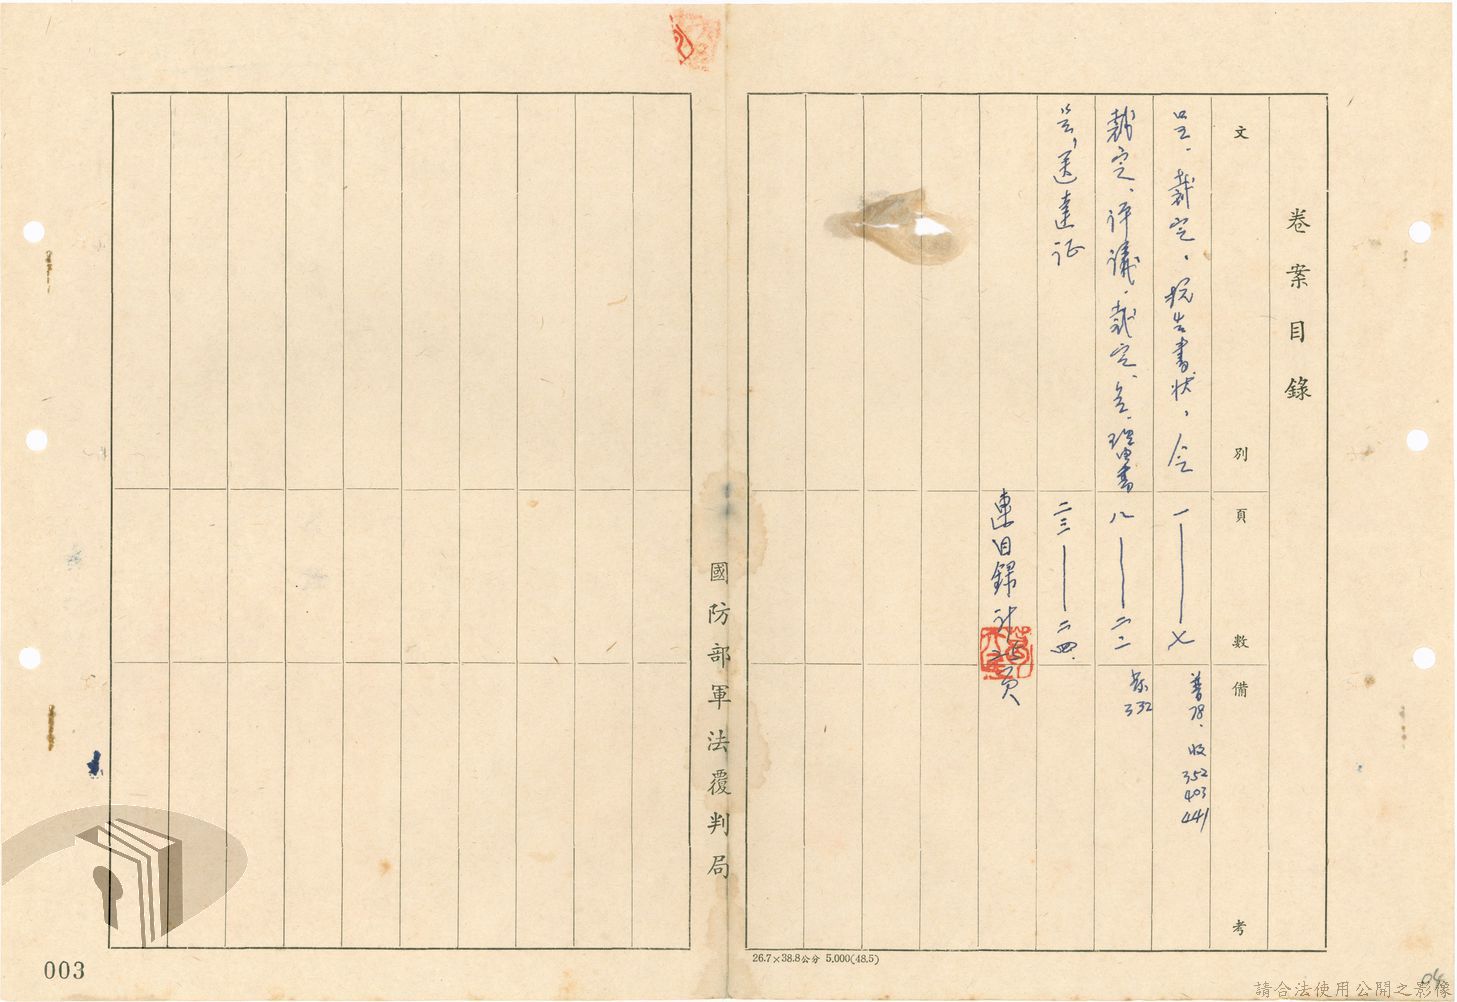 卷案目錄
文別
頁數
備考
呈、裁定、抗告書狀、令
一——七
普78、收
352
403
441
裁定、評議、裁定、令、理由書
八——二二
332
送達証
二三——二四
連目錄計頁
國防部軍法覆判局
26.7×38.8公分 5,000(48.5)
003
04
請合法使用公開之影像